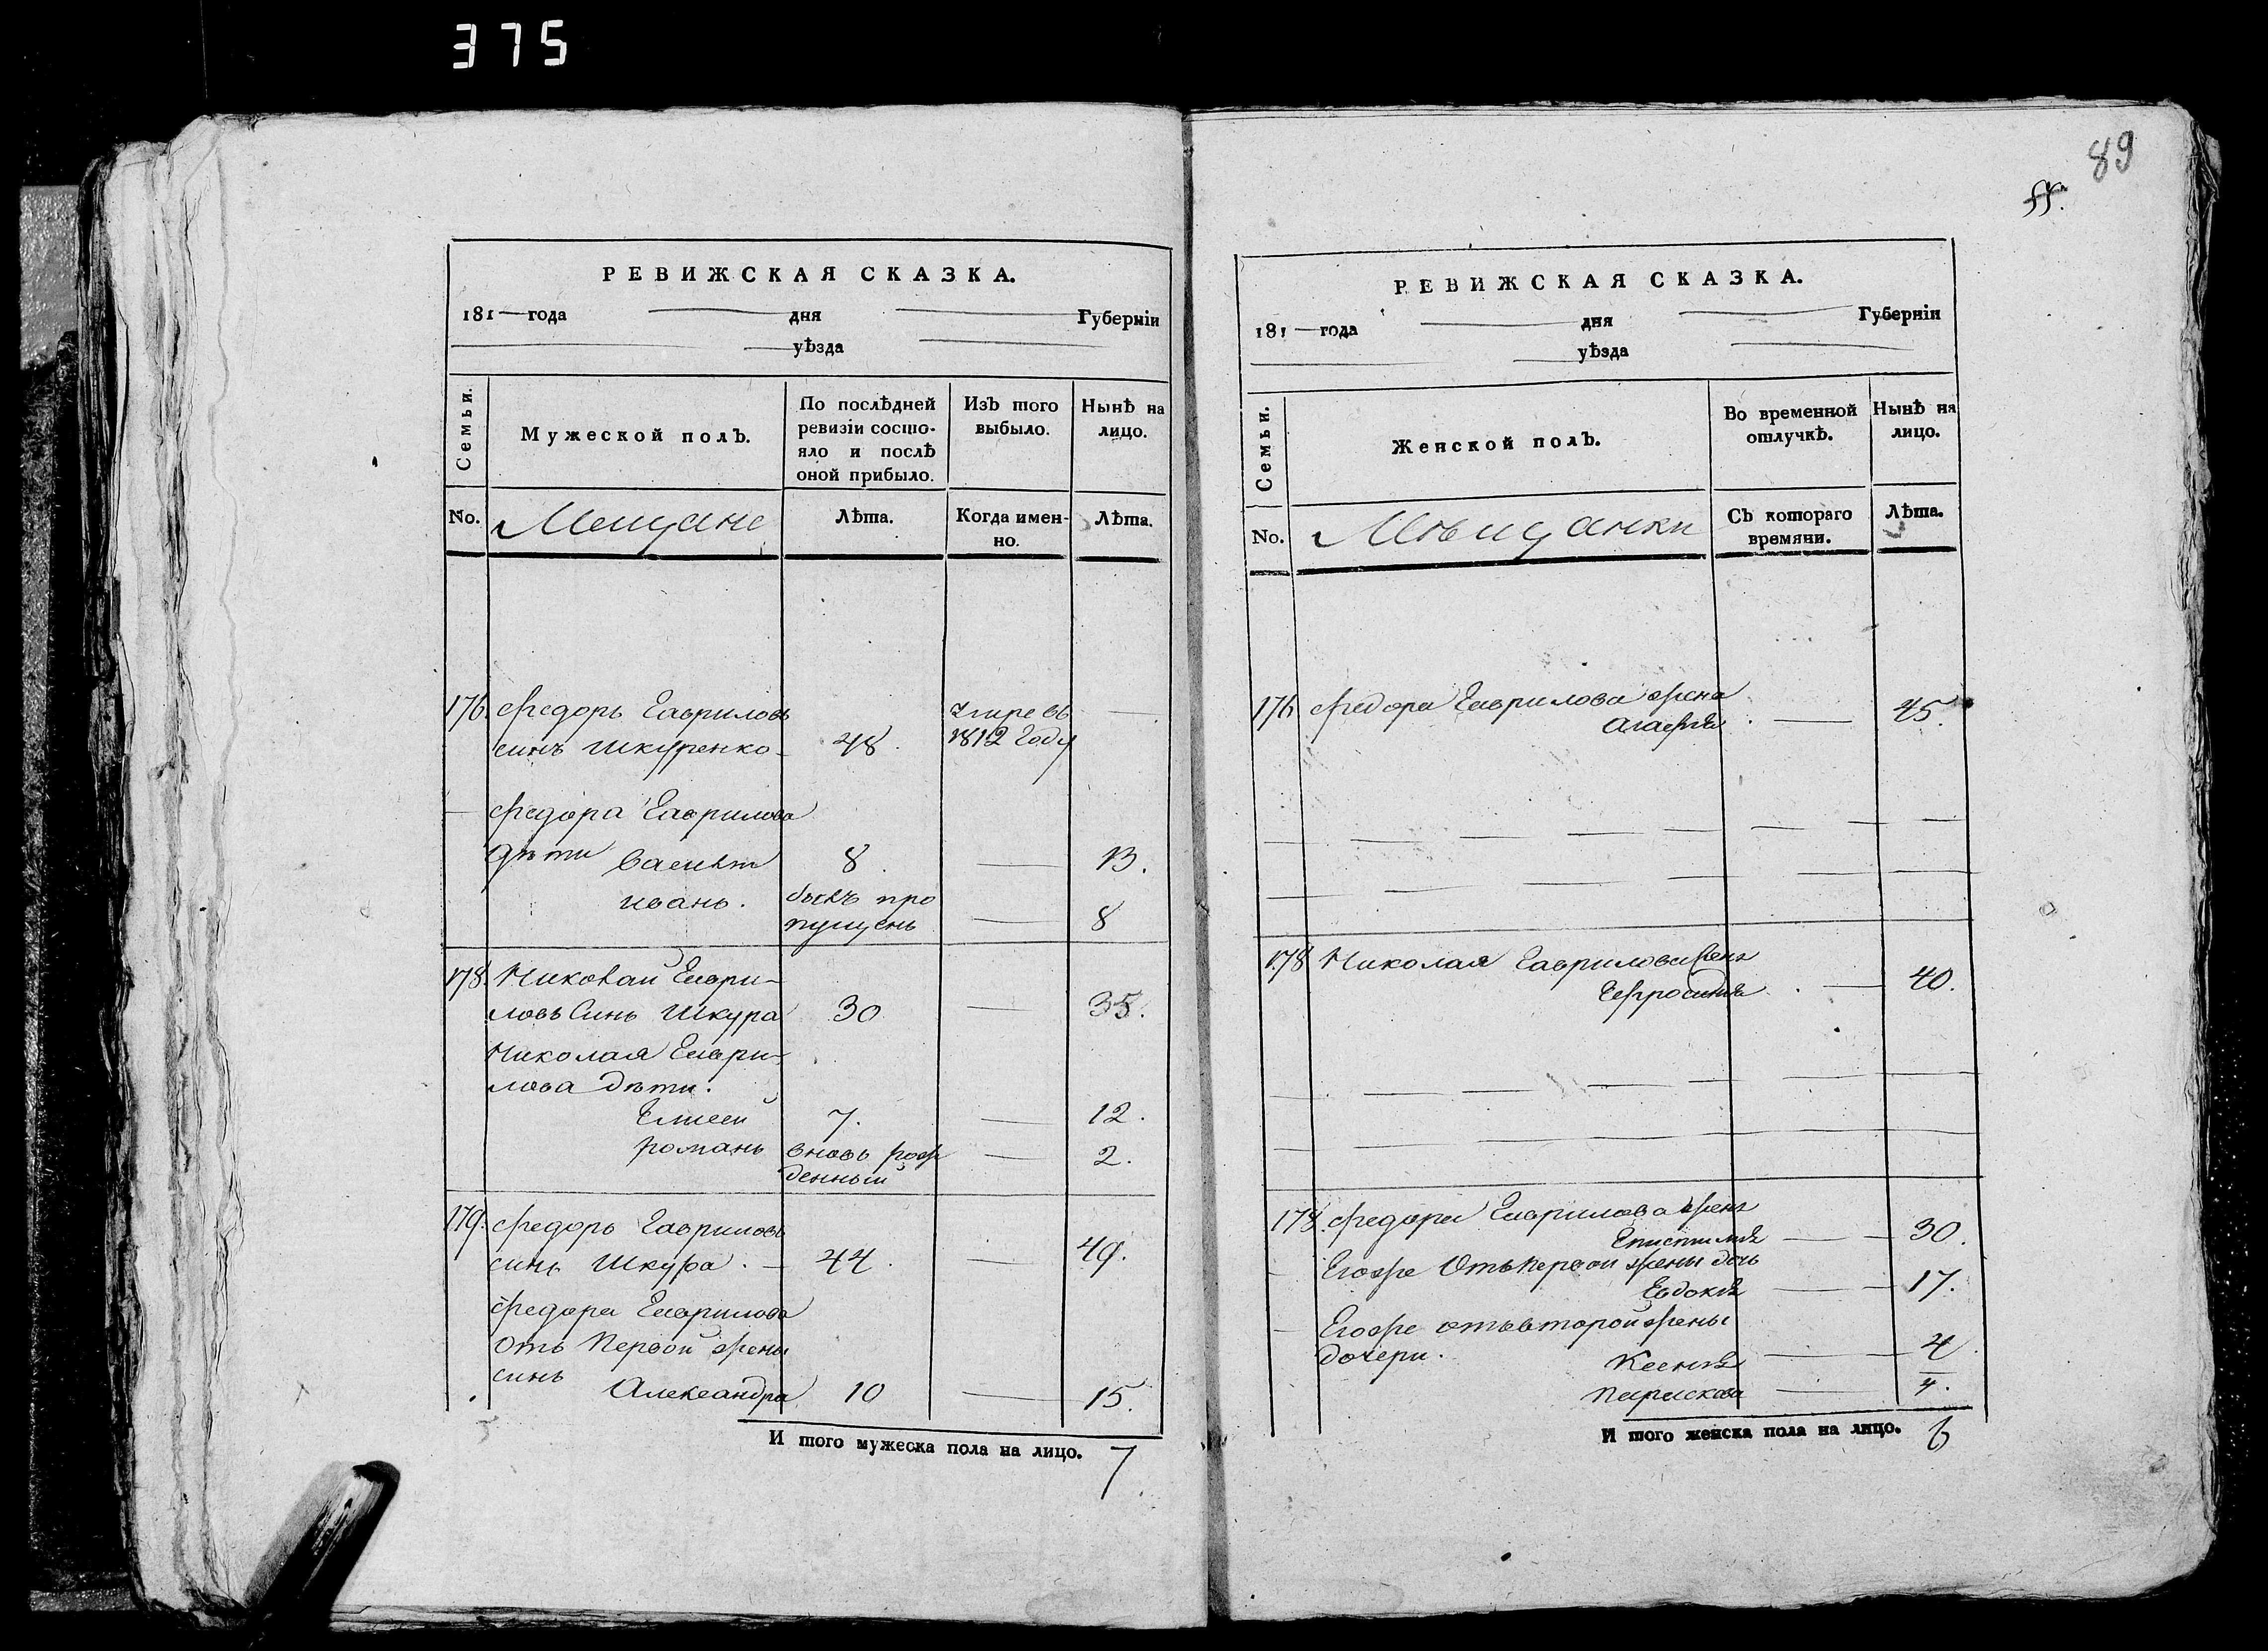 375
89
РЕВИЖСКАЯ СКАЗКА.
181 года дня Губерніи
уѣзда
Семьи.
Мужеской полъ.
По послѣдней ревизіи состояло и послѣ оной прибыло.
Изъ того выбыло.
Нынѣ на лицо.
No.
Мещане
Лѣта.
Когда именно.
Лѣта.
176. Федоръ Гавриловъ
синъ Шкуренко 48. умре въ 1812 году
Федора Гаврилова
дѣти Василѣй 8. 13.
иванъ. былъ пропущенъ 8
178. Николай Гаври-
ловъ Синъ Шкура 30 35.
Николая Гаври-
лова дѣти.
Елисей 7. 12.
романъ вновь рожденный 2.
179. Федоръ Гавриловъ
синъ Шкура. 44. 49.
Федора Гаврилова
отъ Первой жены
синъ
Александра 10 15.
И того мужеска пола на лицо. 7
РЕВИЖСКАЯ СКАЗКА.
181 года дня Губерніи
уѣзда
Семьи.
Женской полъ.
Во временной отлучкѣ.
Нынѣ на лицо.
No.
Мѣщанки
Съ котораго времяни.
Лѣта.
176 Федора Гаврилова жена
Агафия 45.
178 Николая Гаврилова жена
Ефросиния 40.
178. Федора Гаврилова жена
Епистимия 30.
Егоже Отъ первой жены дочь
Евдокия 17.
Егоже отъ второй жены
дочери.
Ксения 4
Параскова 4.
И того женска пола на лицо. 6